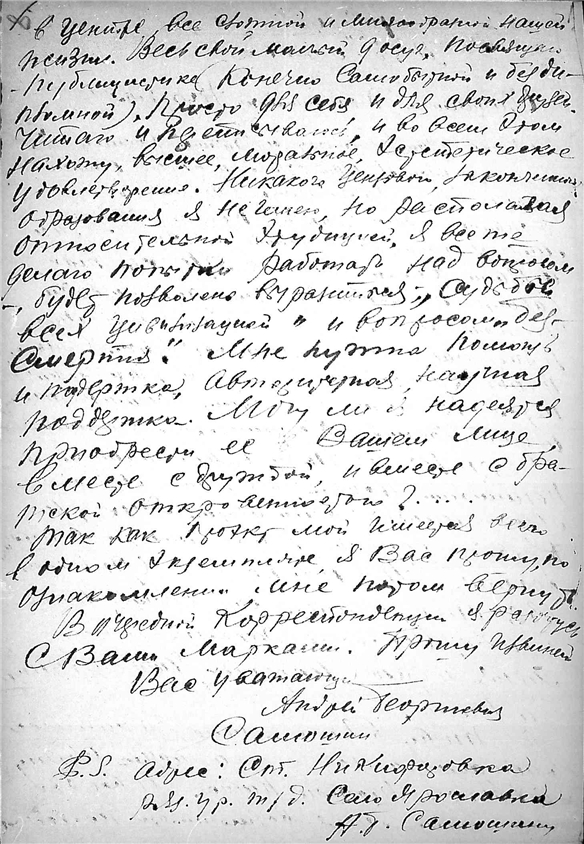 в центре всей сложной и многообразной нашей
жизни. Весь свой малый досуг, посвящаю
публицистике (Конечно самобытной и безди-
пломной). Просто для себя и для своих друзей
Читаю и переписываюсь, и во всем этом
нахожу, высшее, моральное, и эстетическое
удовлетворение. Никакого цензовой, законченного
образования я не имею, но располагая
относительной эрудицией, я все те
делаю попытки работать над вопросом
будет позволено выразиться, „Судьбой
всей цивилизацией" и вопросом „без-
смертия". Мне нужна помощь
и поддержка, авторитетная, научная
поддержка. Могу ли я надеятся
приобрести ее Вашем лице,
вместе с дружбой, и вместе с бра-
тской откровенностью?....
Так как проэкт мой имеется всего
в одном экземпляре, я Вас прошу по
ознакомлении мне потом вернуть.
В очередной Корреспонденции я
С Вами марками. Прошу извинения
Вас уважающий
Андрей Георгиевич
Самошин
P.S. Адрес: Ст. Никифоровка
р. Ур. ж/д. Село Ярославка
А.Г. Самошину